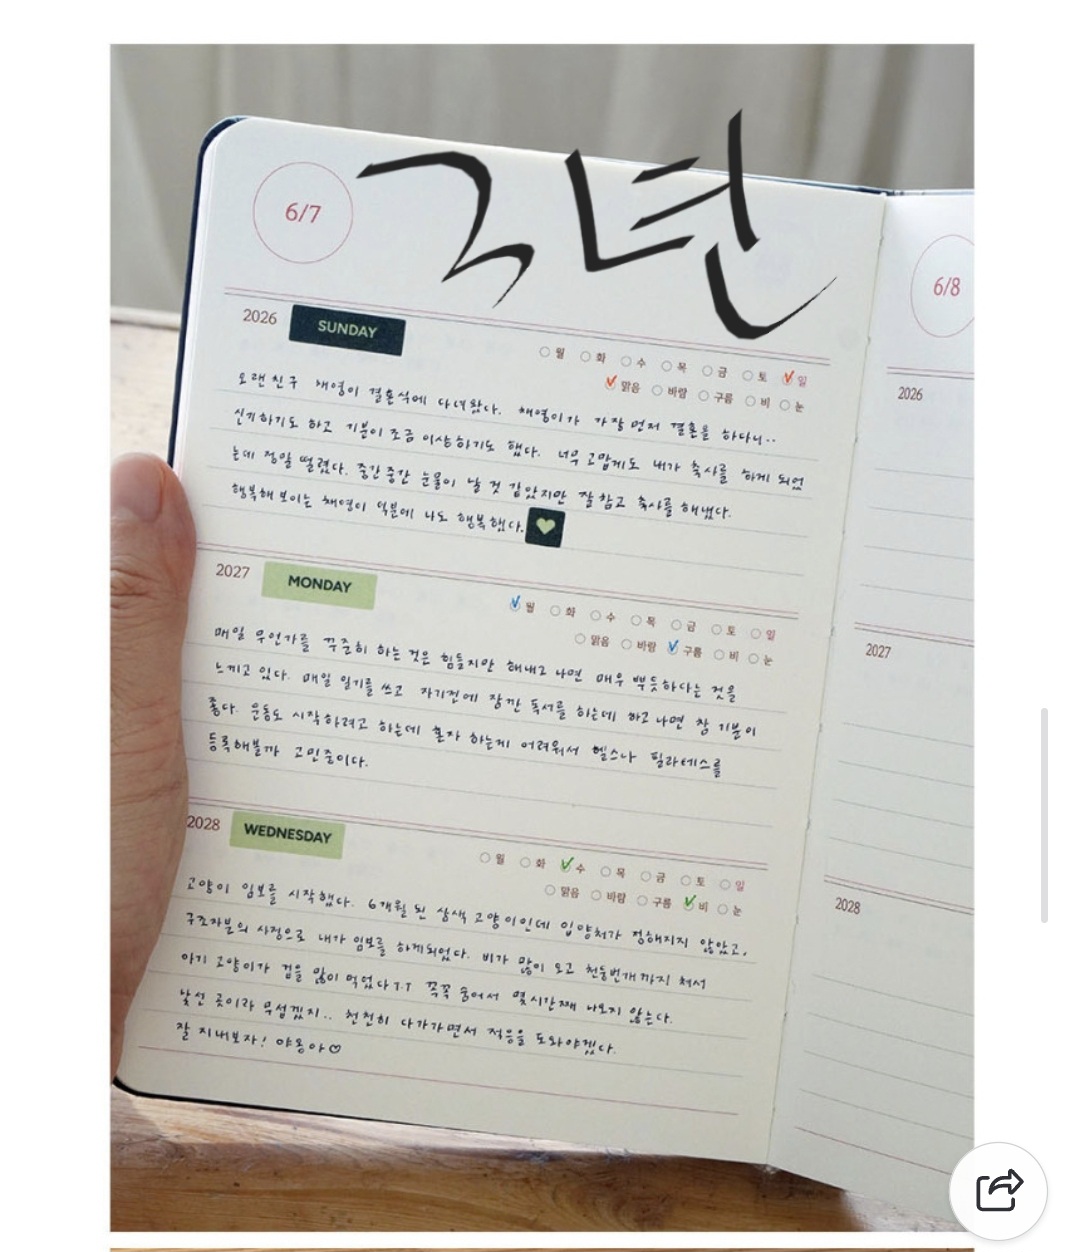 3년
6/7
2026 SUNDAY
월 화 수 목 금 토 일
맑음 바람 구름 비 눈
오랜친구 채영이 결혼식에 다녀왔다. 채영이가 가장 먼저 결혼을 하다니..
신기하기도 하고 기분이 조금 이상하기도 했다. 너무 고맙게도 내가 축사를 하게 되었
는데 정말 떨렸다. 중간중간 눈물이 날 것 같았지만 잘 참고 축사를 해냈다.
행복해 보이는 채영이 덕분에 나도 행복했다.
2027 MONDAY
월 화 수 목 금 토 일
맑음 바람 구름 비 눈
매일 무언가를 꾸준히 하는 것은 힘들지만 해내고 나면 매우 뿌듯하다는 것을
느끼고 있다. 매일 일기를 쓰고 자기전에 잠깐 독서를 하는데 하고 나면 참 기분이
좋다. 운동도 시작하려고 하는데 혼자 하는게 어려워서 헬스나 필라테스를
등록해볼까 고민중이다.
2028 WEDNESDAY
월 화 수 목 금 토 일
맑음 바람 구름 비 눈
고양이 임보를 시작했다. 6개월 된 삼색 고양이인데 입양처가 정해지지 않았고,
구조자분의 사정으로 내가 임보를 하게되었다. 비가 많이 오고 천둥번개까지 쳐서
아기 고양이가 겁을 많이 먹었다 T.T 꼭꼭 숨어서 몇시간째 나오지 않는다.
낯선 곳이라 무섭겠지.. 천천히 다가가면서 적응을 도와야겠다.
잘 지내보자! 야옹아♡
6/8
2026
2027
2028